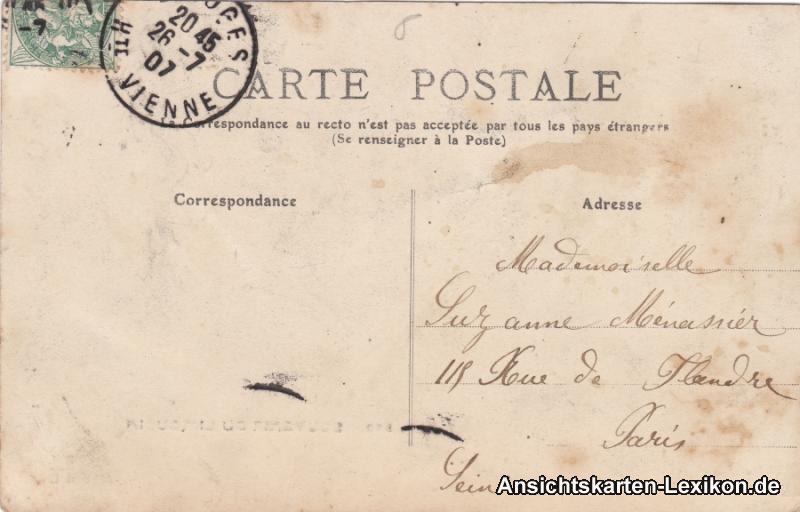 OGES
20 45
26 -7
07
HTE
VIENNE
-7
CARTE POSTALE
La Correspondance au recto n'est pas acceptée par tous les pays étrangers
(Se renseigner à la Poste)
Correspondance
Adresse
Mademoiselle
Suzanne Ménassier
Rue de Flandre
Paris
Seine
Ansichtskarten-Lexikon.de